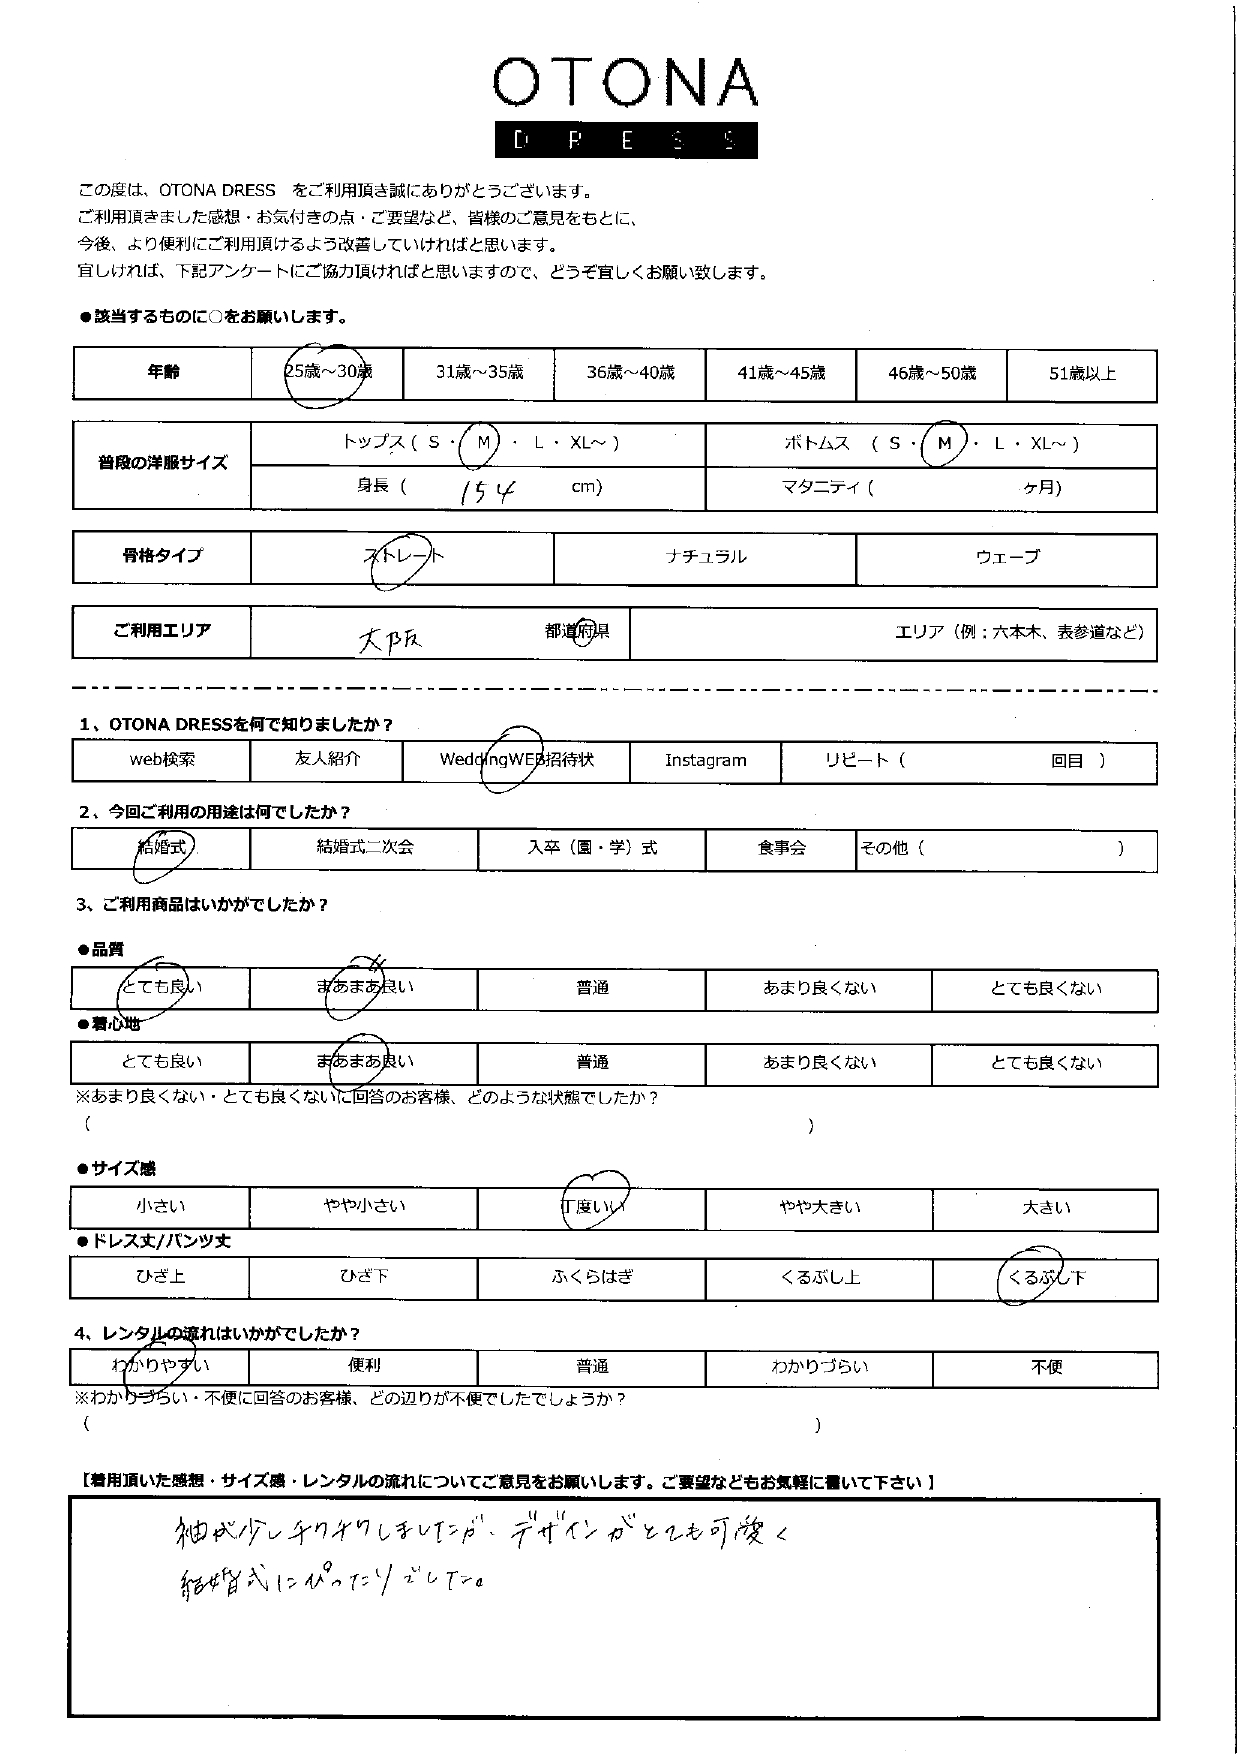 OTONA
DRESS
この度は、OTONA DRESS をご利用頂き誠にありがとうございます。
ご利用頂きました感想・お気付きの点・ご要望など、皆様のご意見をもとに、
今後、より便利にご利用頂けるよう改善していければと思います。
宜しければ、下記アンケートにご協力頂ければと思いますので、どうぞ宜しくお願い致します。
●該当するものに○をお願いします。
年齢 25歳～30歳 31歳～35歳 36歳～40歳 41歳～45歳 46歳～50歳 51歳以上
普段の洋服サイズ トップス ( S ・ M ・ L ・ XL～ ) ボトムス ( S ・ M ・ L ・ XL～ )
身長 ( 154 cm) マタニティ ( ヶ月)
骨格タイプ ストレート ナチュラル ウェーブ
ご利用エリア 大阪 都道府県 エリア（例：六本木、表参道など）
1、OTONA DRESSを何で知りましたか？
web検索 友人紹介 WeddingWEB招待状 Instagram リピート ( 回目 )
2、今回ご利用の用途は何でしたか？
結婚式 結婚式二次会 入卒（園・学）式 食事会 その他 ( )
3、ご利用商品はいかがでしたか？
●品質
とても良い まあまあ良い 普通 あまり良くない とても良くない
●着心地
とても良い まあまあ良い 普通 あまり良くない とても良くない
※あまり良くない・とても良くないに回答のお客様、どのような状態でしたか？
( )
●サイズ感
小さい やや小さい 丁度いい やや大きい 大きい
●ドレス丈/パンツ丈
ひざ上 ひざ下 ふくらはぎ くるぶし上 くるぶし下
4、レンタルの流れはいかがでしたか？
わかりやすい 便利 普通 わかりづらい 不便
※わかりづらい・不便に回答のお客様、どの辺りが不便でしたでしょうか？
( )
【着用頂いた感想・サイズ感・レンタルの流れについてご意見をお願いします。ご要望などもお気軽に書いて下さい 】
袖が少しチクチクしましたが、デザインがとても可愛く
結婚式にぴったりでした。